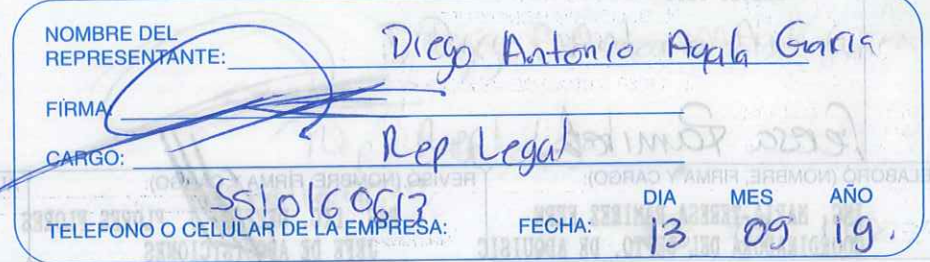 NOMBRE DEL
REPRESENTANTE: Diego Antonio Ayala Garcia
FIRMA:
CARGO: Rep Legal
5510160613
TELEFONO O CELULAR DE LA EMPRESA:
FECHA:
DIA MES AÑO
13 09 19.